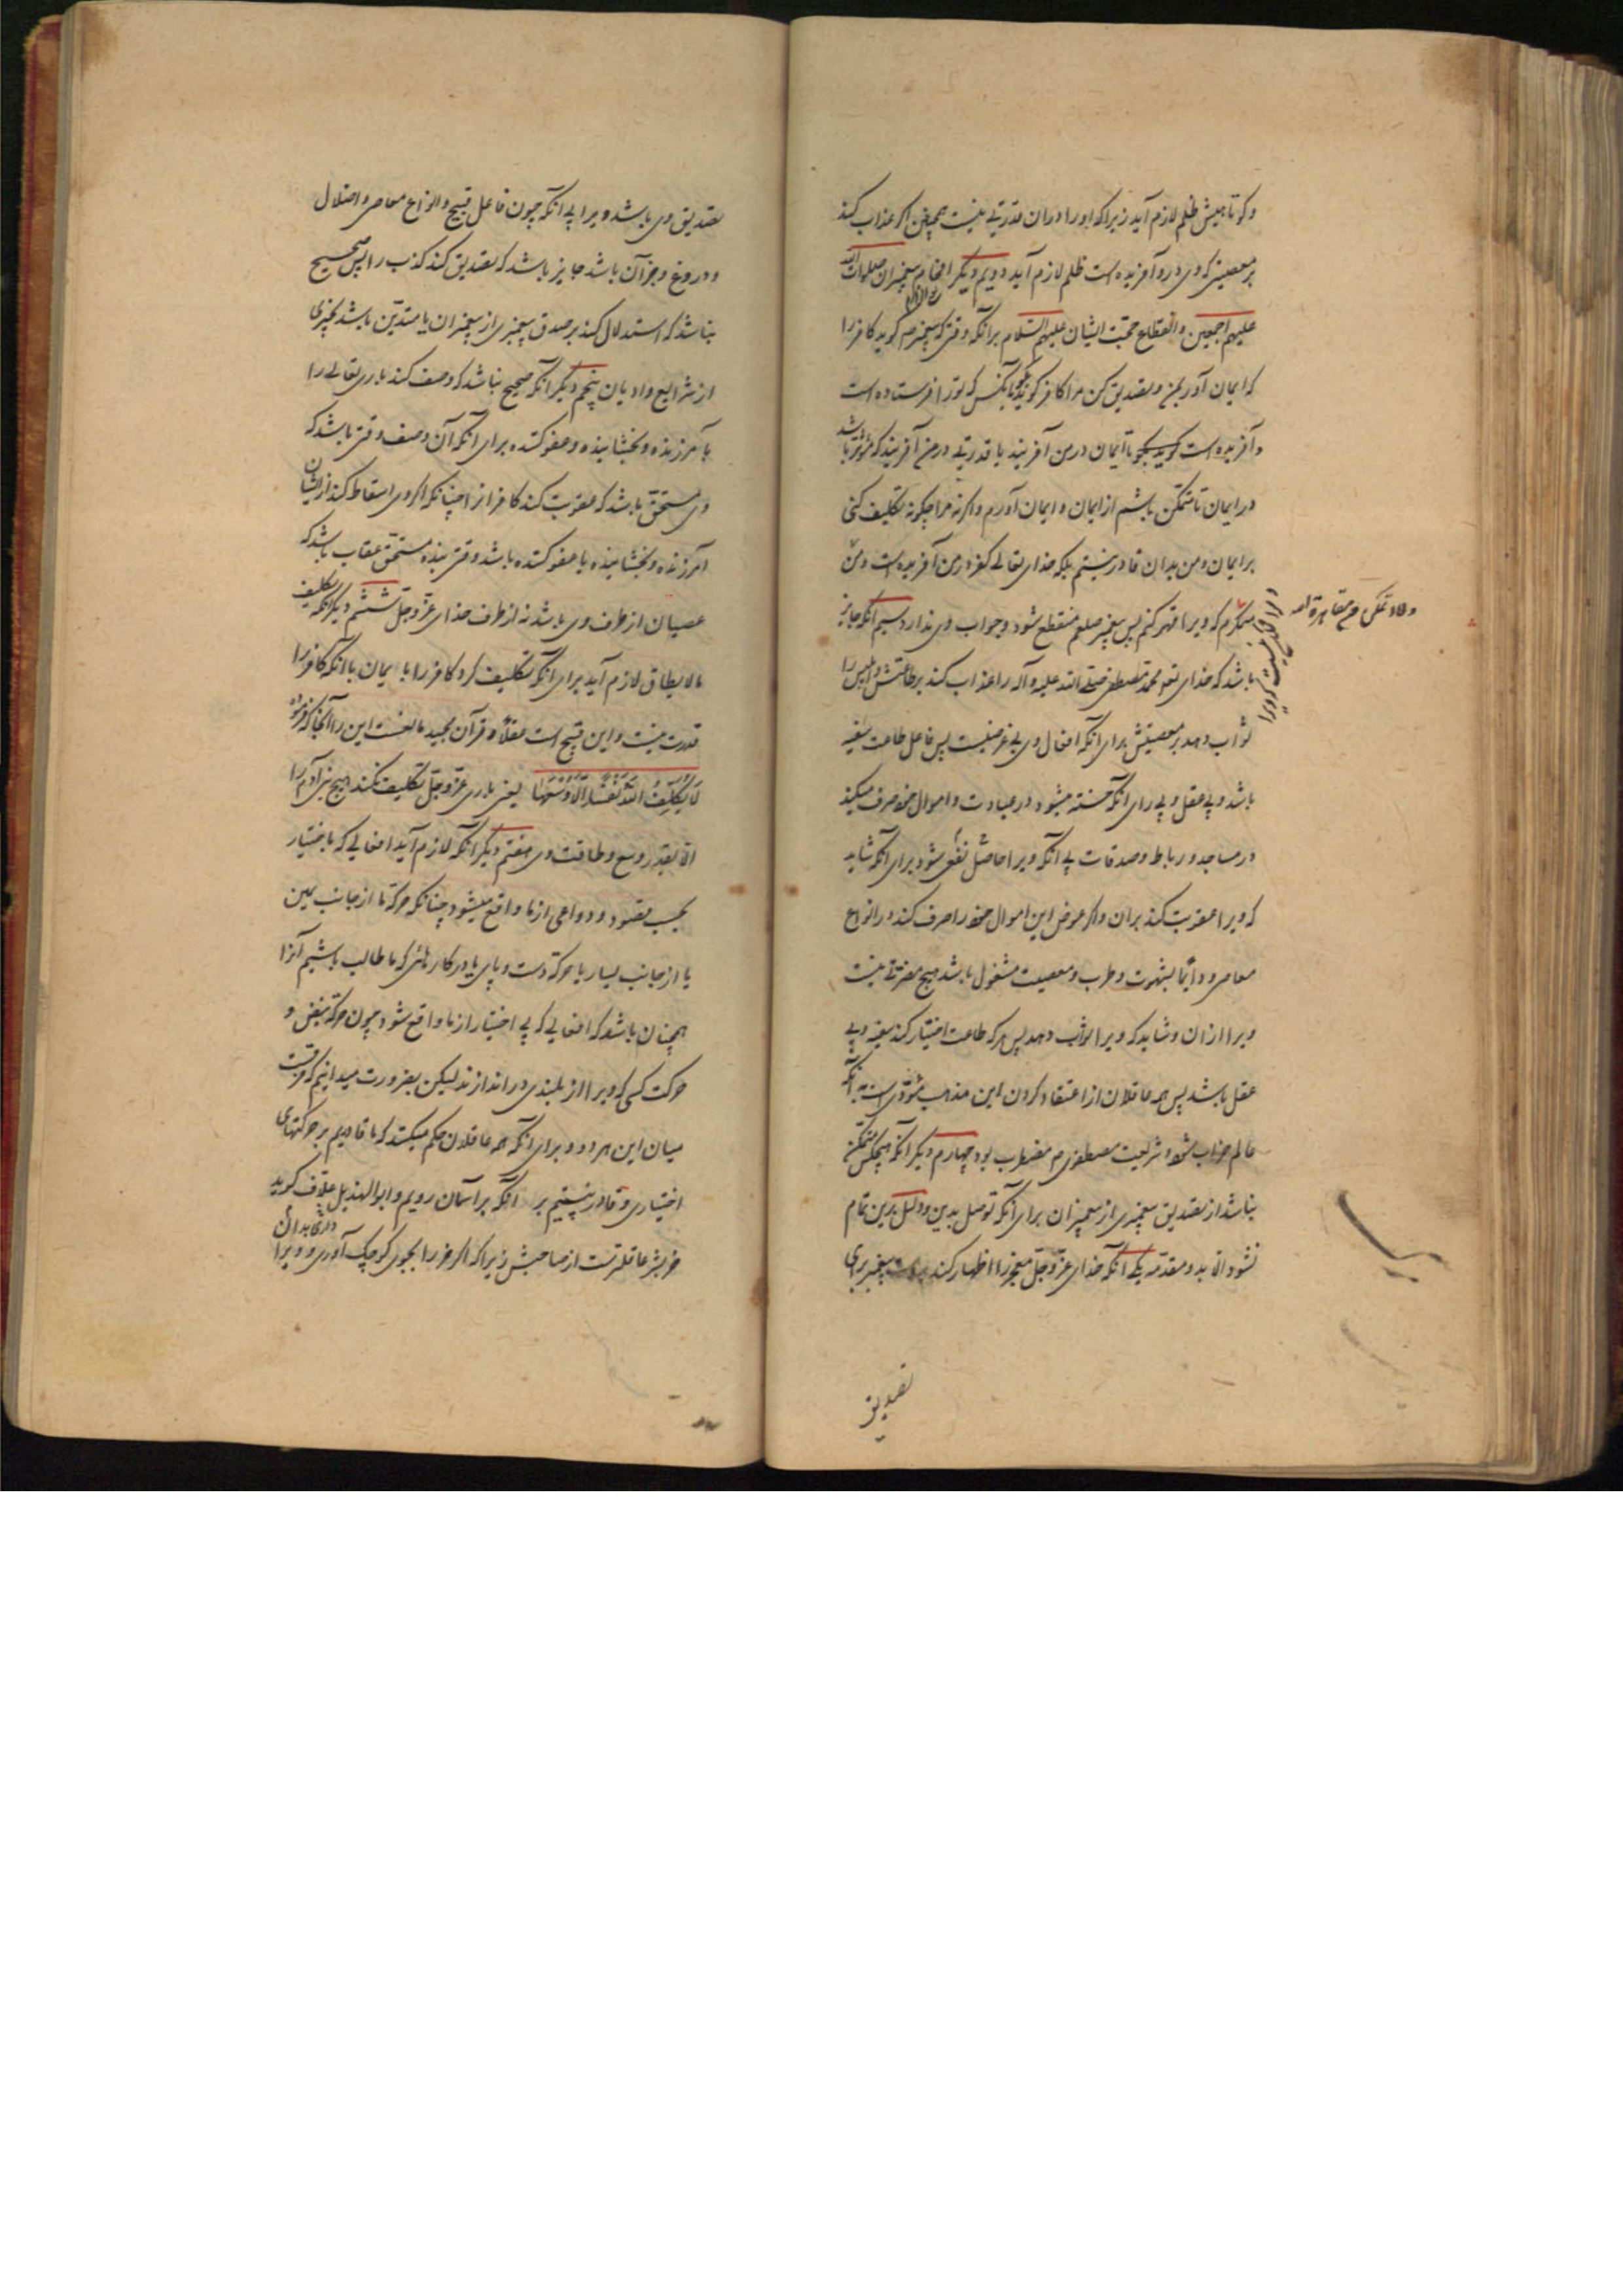 و کوتاهیش ظلم لازم آید زیرا که او را در آن قدرتی نیست همچنین اگر عذاب کند
بر معصیتی که وی در و آفریده است ظلم لازم آید دویم دیگر افحام پیغمبران صلوات الله
علیهم اجمعین و انقطاع حجت ایشان علیهم السلام برانکه وقتی که پیغمبر صم کوید کافر را
که ایمان آور بمن و تصدیق کن مرا کافر کوید بگو بآنکس که تو را فرستاده است
و آفریده است کوید بگو تا ایمان در من آفریند یا قدرتی در من آفریند که مؤثر باشد
در ایمان تا متمکن باشم از ایمان و ایمان آورم و اگر نه مرا چگونه تکلیف کنی
بر ایمان و من بدان قادر نیستم بلکه خدای تعالی کفر در من آفریده است و من
که ویرا قهر کنم پس پیغمبر صلعم منقطع شود و جواب وی ندارد سیم آنکه جایز
باشد که خدای تعو محمد مصطفی صلی الله علیه و آله را عذاب کند بر طاعتش و ابلیس را
ثواب دهد بر معصیتش برای آنکه افعال وی بی غرضیست پس فاعل طاعت سفیه
باشد و بی عقل و بی رای آنکه خسته میشود در عبادت و اموال خود صرف میکند
در مساجد و رباط و صدقات بی آنکه ویرا حاصل نفعی شود برای آنکه شاید
که ویرا عقوبت کند بران و اگر عوض این اموال خود را صرف کند در انواع
معاصی و دائما بشهوت و طرب و معصیت مشغول باشد هیچ مضرتی نیست
ویرا ازان و شاید که ویرا ثواب دهد پس هر که طاعت اختیار کند سفیه و بی
عقل باشد پس همه عاقلان از اعتقاد کردن این مذهب مؤدی است به آنکه
عالم خراب شود و شریعت مصطفوی م مضطرب بود چهارم دیگر آنکه هیچکس متمکن
نباشد از تصدیق پیغمبری از پیغمبران برای آنکه توصل بدین و دلیل برین تمام
نشود الا بدو مقدمه یکی آنکه خدای عز و جل معجز را اظهار کند پیغمبر برای
تصدیق
تصدیق وی باشد و یرا بی آنکه چون فاعل قبیح و انواع معاصی و اضلال
و دروغ و جز آن باشد جایز باشد که تصدیق کند کذب را پس صحیح
نباشد که استدلال کند بر صدق پیغمبری از پیغمبران یا متدین باشد بچیزی
از شرایع و ادیان پنجم دیگر آنکه صحیح نباشد که وصف کند باری تعالی را
بآمرزنده و بخشاینده و عفو کننده برای آنکه آن وصف وقتی باشد که
وی مستحق باشد که عقوبت کند کافر از چنانکه اگر وی اسقاط کند از ایشان
آمرزنده و بخشاینده یا عفو کننده باشد وقتی بنده مستحق عقاب باشد که
عصیان از طرف وی باشد نه از طرف خدای عز و جل ششم دیگر آنکه تکلیف
ما لا یطاق لازم آید برای آنکه تکلیف کرد کافر را بایمان با آنکه کافر را
قدرت نیست و این قبیح است عقلا و قرآن مجید مانعست این را آنجا که فرموده
لَا یُکَلِّفُ اللهُ نَفْسًا اِلَّا وُسْعَهَا یعنی باری عز و جل تکلیف نکند هیچ بنی آدم را
الا بقدر وسع و طاقت وی هفتم دیگر آنکه لازم آید افعالی که باختیار
بحسب مقصود و دواعی از ما واقع میشود چنانکه حرکة ما از جانب یمین
یا از جانب یسار یا حرکة دست و پای ما در کارهائی که ما طالب باشیم آنرا
همچنان باشد که افعالی که بی اختیار از ما واقع شود چون حرکة نبض و
حرکت کسی که ویرا از بلندی در اندازند لیکن بضرورت میدانیم که فرقست
میان این هر دو و برای آنکه همه عاقلان حکم میکنند که ما قادریم بر حرکتهای
اختیاری و قادر نیستیم بر آنکه بر آسمان رویم و ابو الهذیل علاف کوید
خر بشر عاقلترست از صاحبش زیرا که اگر خر را بجوی کوچک آوری و ویرا